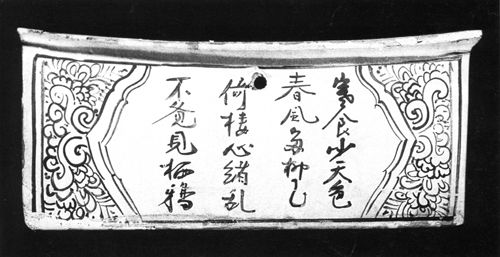 寒食少天色
春風多柳花
倚楼心緒乱
不覺見栖鴉